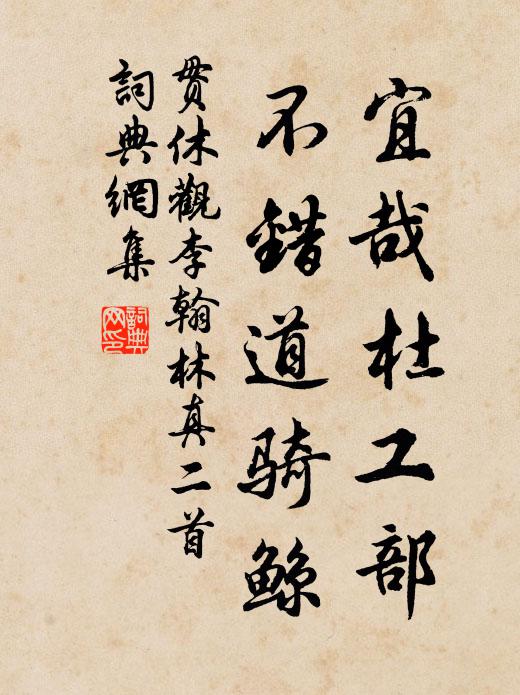 宜哉杜工部
不錯道骑鲸
贯休觀李翰林真二首
詞典網集
詞典网印